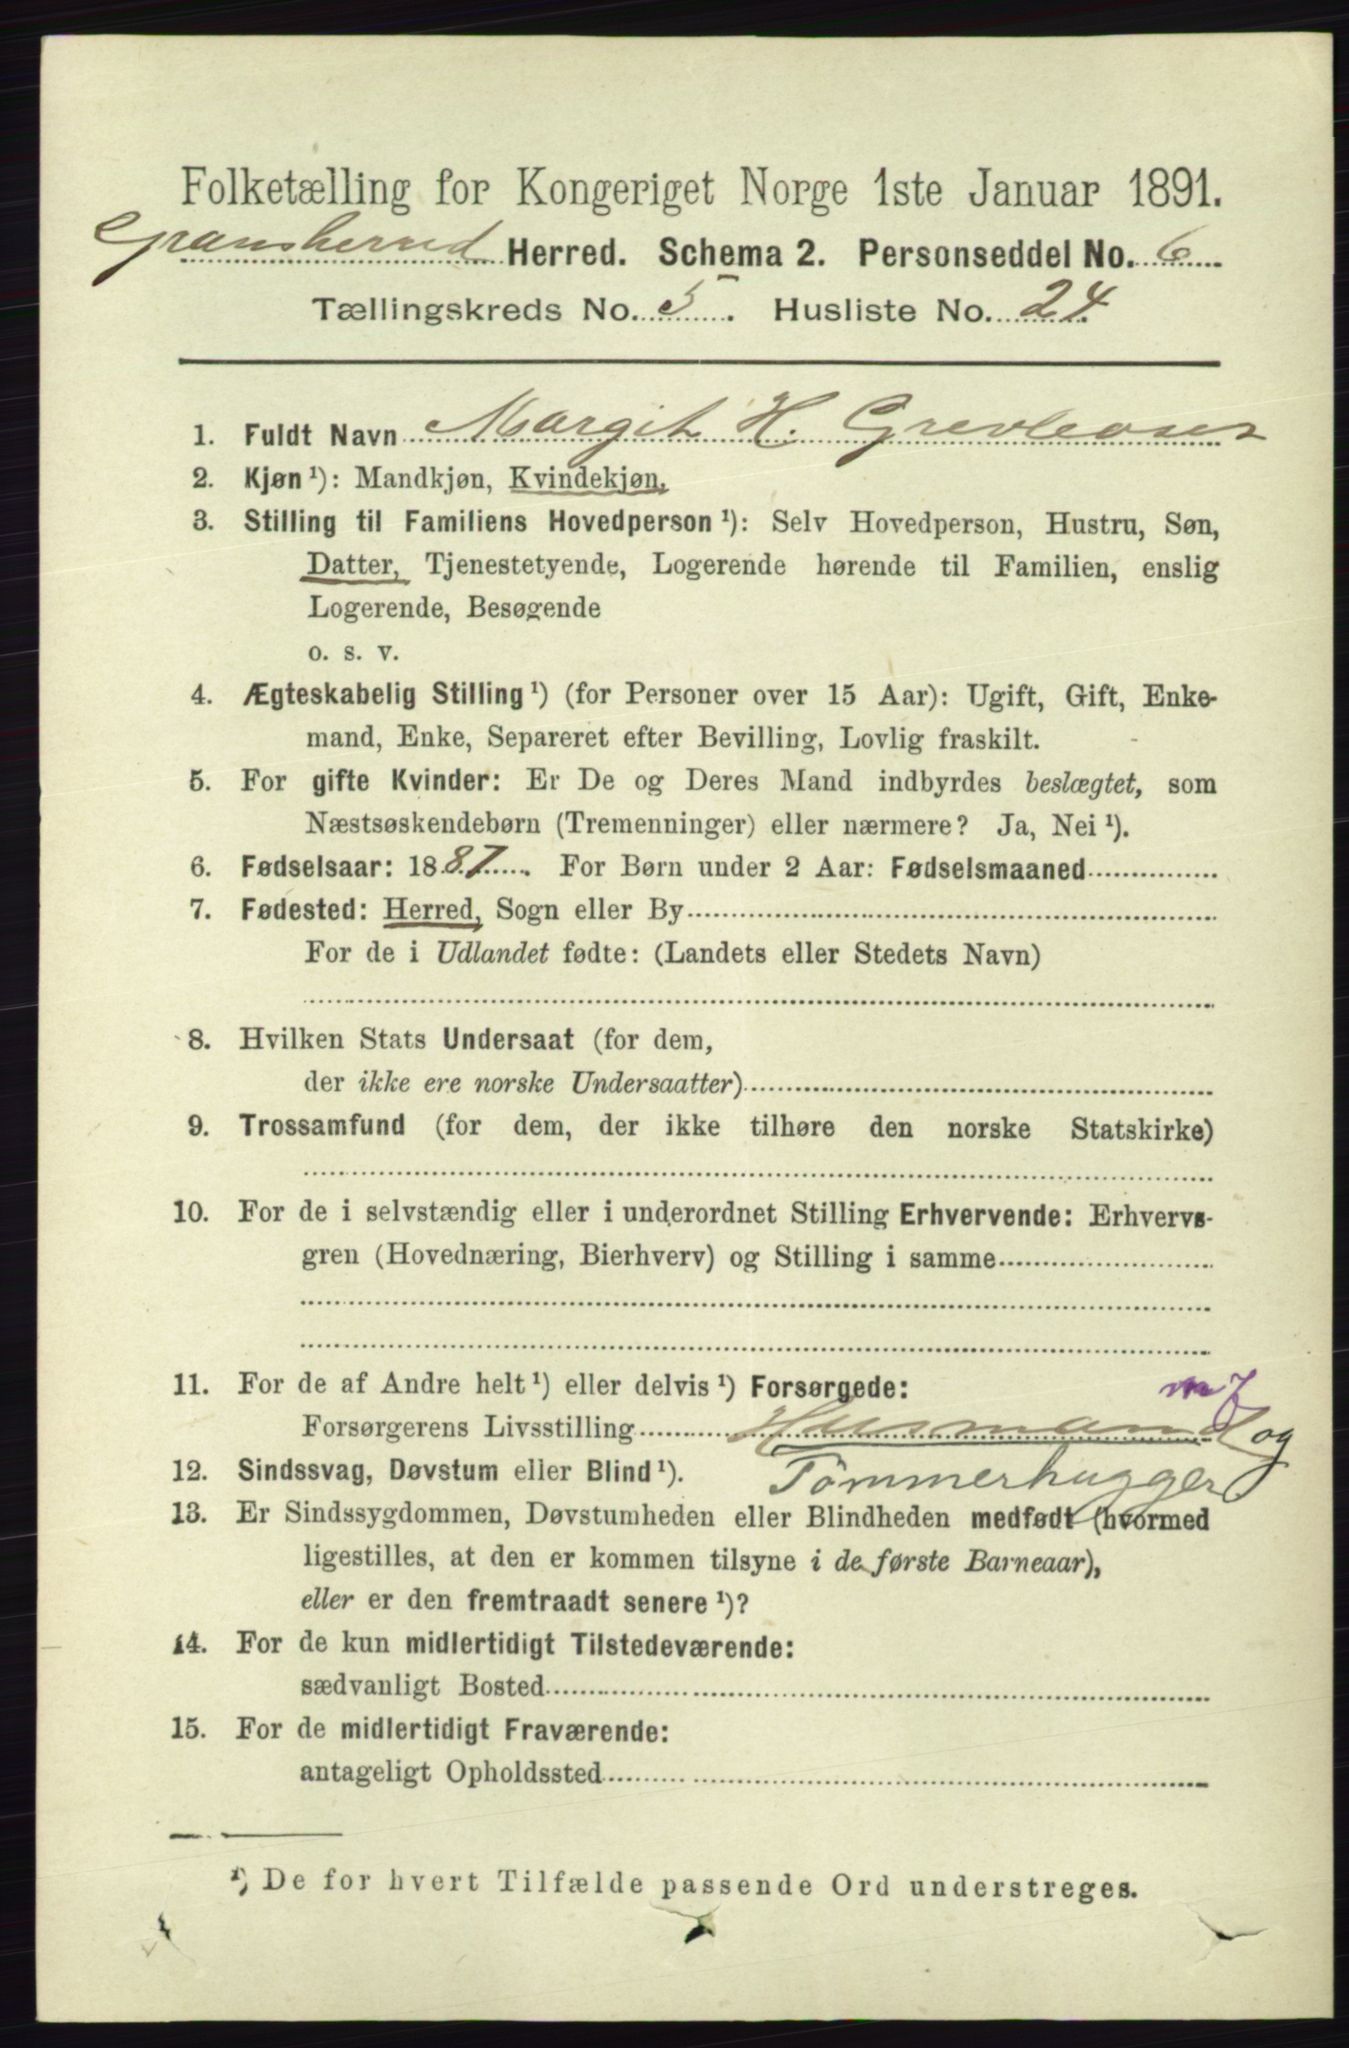 Folketælling for Kongeriget Norge 1ste Januar 1891.
Gransherred Herred. Schema 2. Personseddel No. 6
Tællingskreds No. 5. Husliste No. 24.
1. Fuldt Navn Margit H.
2. Kjøn ¹): Mandkjøn, Kvindekjøn.
3. Stilling til Familiens Hovedperson ¹): Selv Hovedperson, Hustru, Søn,
Datter, Tjenestetyende, Logerende hørende til Familien, enslig
Logerende, Besøgende
o. s. v.
4. Ægteskabelig Stilling ¹) (for Personer over 15 Aar): Ugift, Gift, Enke-
mand, Enke, Separeret efter Bevilling, Lovlig fraskilt.
5. For gifte Kvinder: Er De og Deres Mand indbyrdes beslægtet, som
Næstsøskendebørn (Tremenninger) eller nærmere? Ja, Nei ¹).
6. Fødselsaar: 1887. For Børn under 2 Aar: Fødselsmaaned
7. Fødested: Herred, Sogn eller By
For de i Udlandet fødte: (Landets eller Stedets Navn)
8. Hvilken Stats Undersaat (for dem,
der ikke ere norske Undersaatter)
9. Trossamfund (for dem, der ikke tilhøre den norske Statskirke)
10. For de i selvstændig eller i underordnet Stilling Erhvervende: Erhvervs-
gren (Hovednæring, Bierhverv) og Stilling i samme
11. For de af Andre helt ¹) eller delvis ¹) Forsørgede:
Forsørgerens Livsstilling Husmand og
12. Sindssvag, Døvstum eller Blind ¹). Tømmerhugger
13. Er Sindssygdommen, Døvstumheden eller Blindheden medfødt (hvormed
ligestilles, at den er kommen tilsyne i de første Barneaar),
eller er den fremtraadt senere ¹)?
14. For de kun midlertidigt Tilstedeværende:
sædvanligt Bosted
15. For de midlertidigt Fraværende:
antageligt Opholdssted
¹) De for hvert Tilfælde passende Ord understreges.